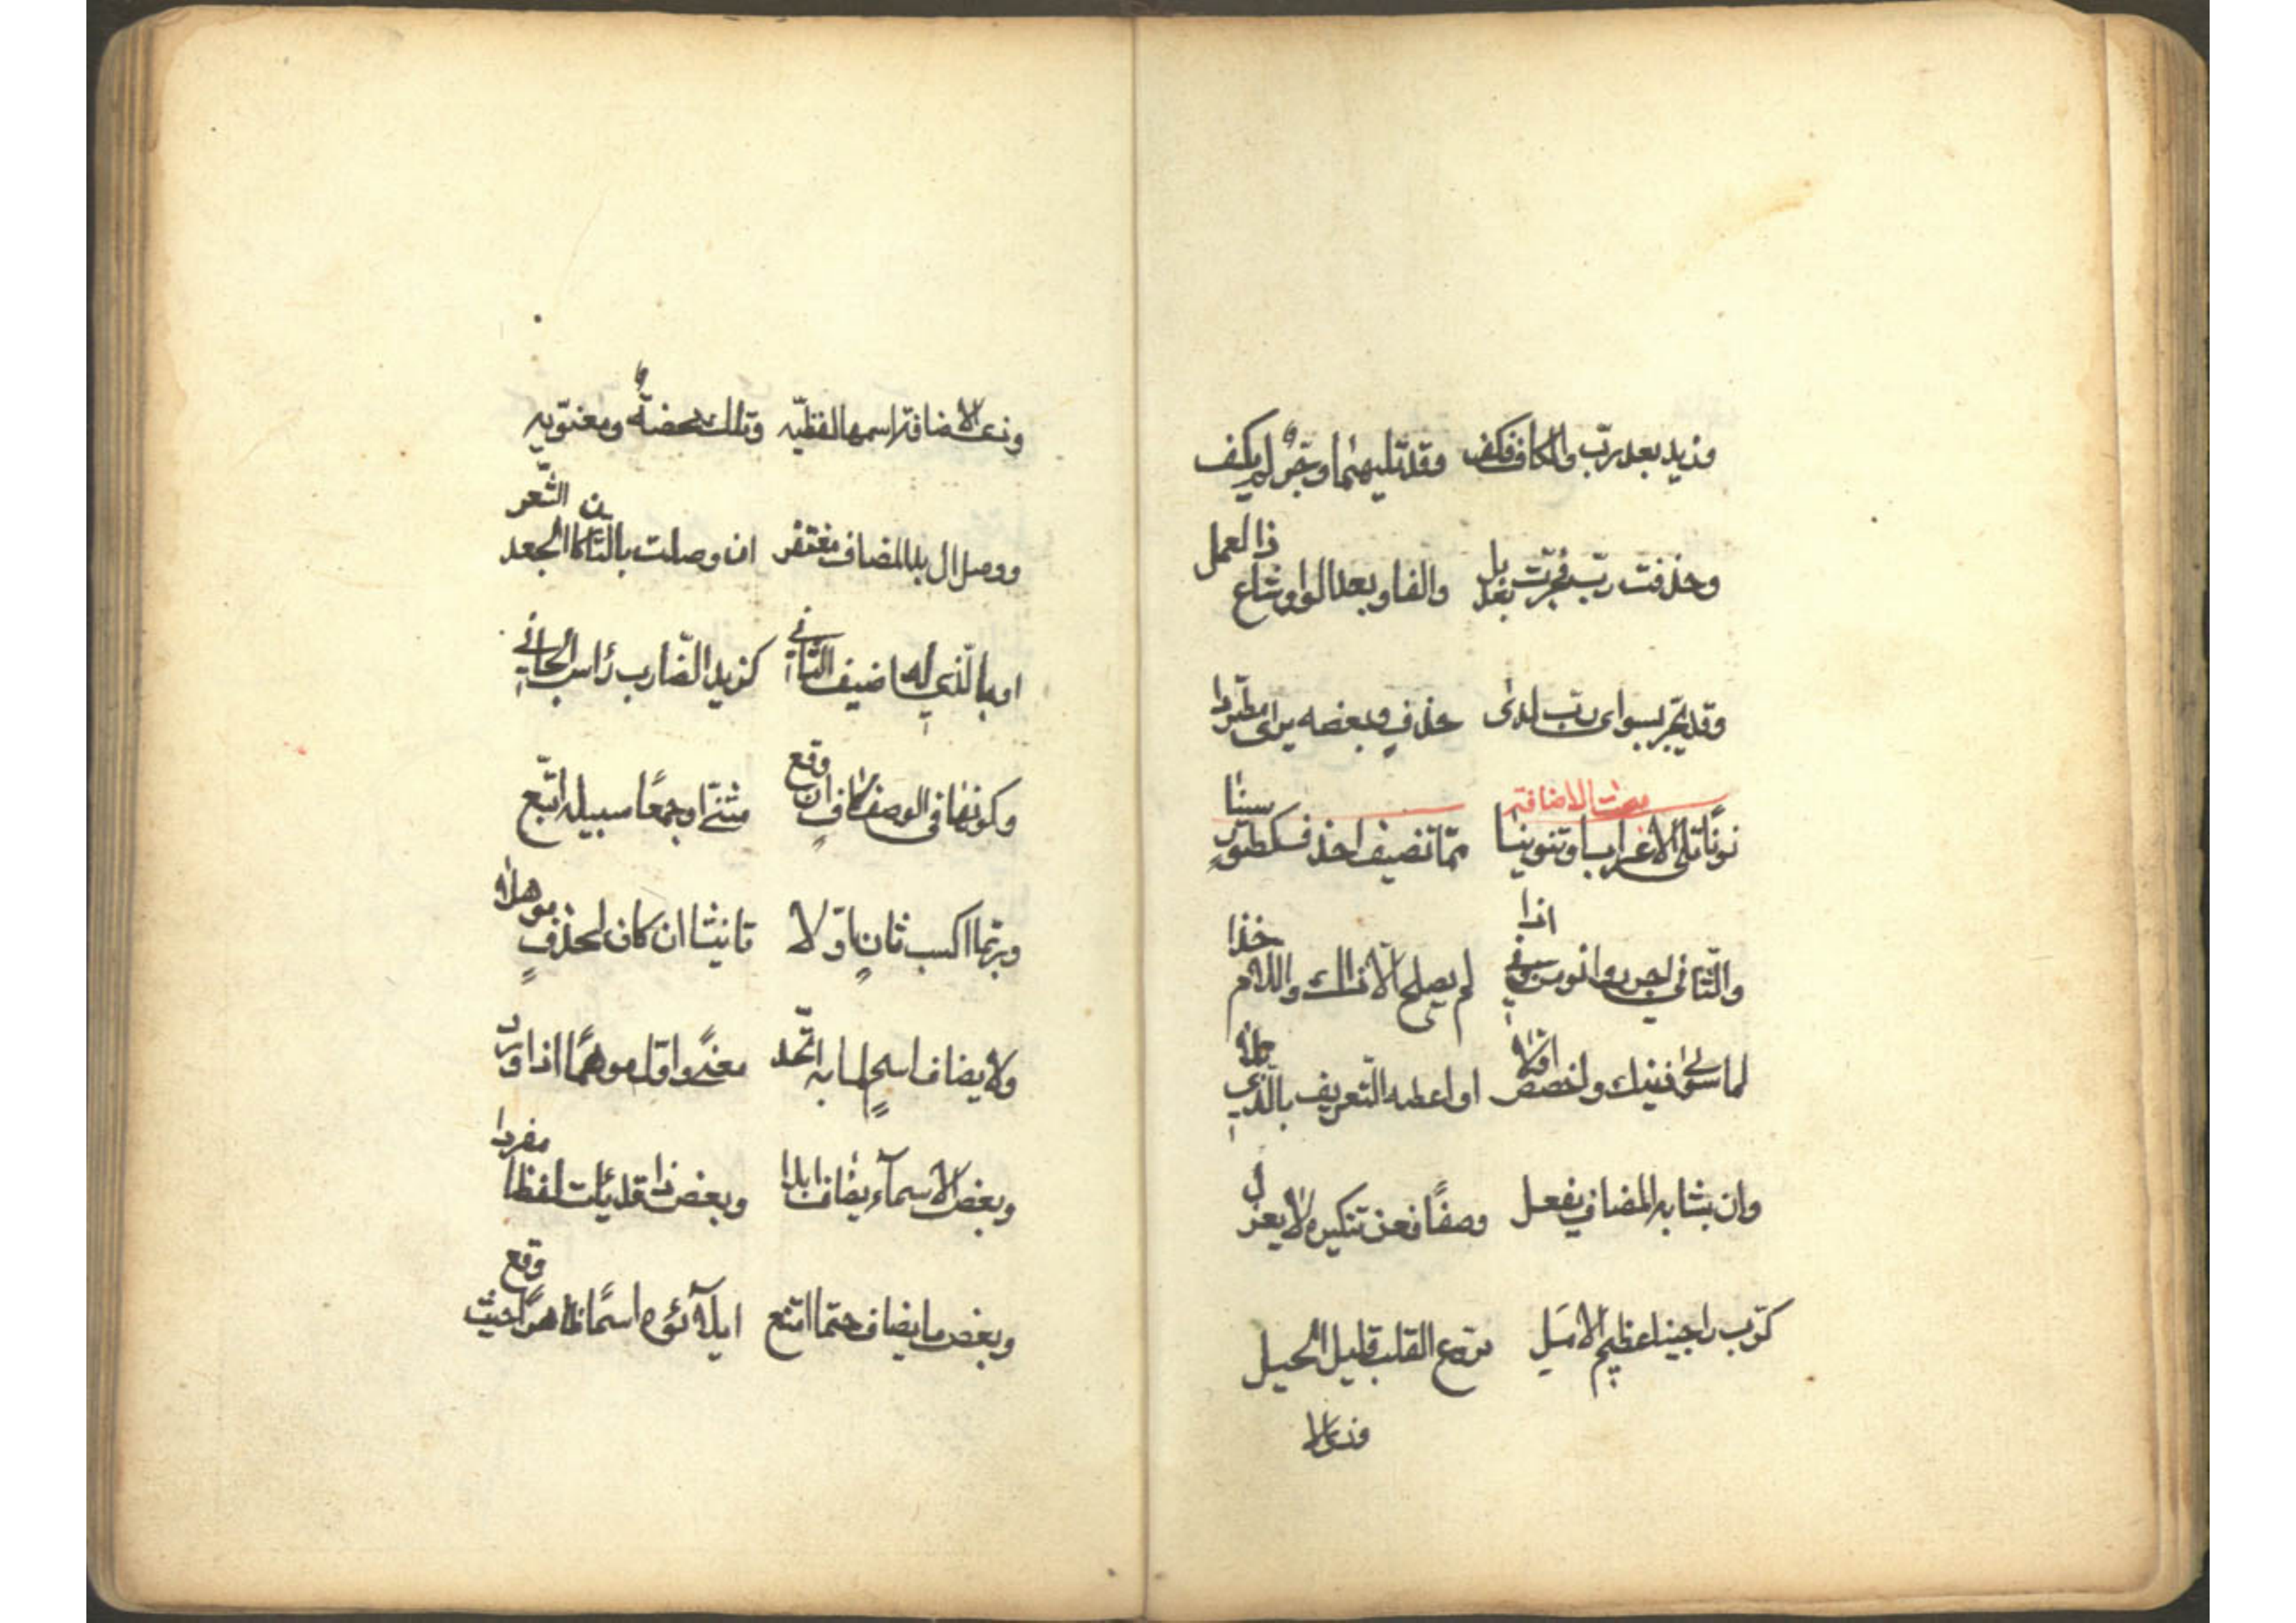 وزيد بعد ربّ والكاف فكف وقد تليهما وجرٌّ لم يكف
وحذفت ربّ فجرّت بعد بل والفا وبعد الواو شاع ذا العمل
وقد يجرّ بسوى ربّ لدى حذفٍ وبعضه يرى مطّردا
مبحث الاضافة
نونًا تلي الاعراب او تنوينا ممّا تضيف احذف كطور سينا
والثّاني اجرر وانو من او في اذا لم يصلح الّا ذاك واللام خذا
لما سوى ذينك واخصص اوّلا او اعطه التّعريف بالّذي تلا
وان يشابه المضاف يفعل وصفًا فعن تنكيره لا يعزل
كربّ راجينا عظيم الامل مروّع القلب قليل الحيل
وذي الا
وذي الاضافة اسمها لفظيّه وتلك محضةٌ ومعنويّه
ووصل ال بذا المضاف مغتفر ان وصلت بالثّان كالجعد الشّعر
او بالّذي له اضيف الثّاني كزيد الضّارب رأس الجاني
وكونها في الوصف كافٍ ان وقع مثنّى او جمعًا سبيله اتّبع
وربّما اكسب ثانٍ اوّلا تانيثا ان كان لحذفٍ موهلا
ولا يضاف اسم لما به اتّحد معنًى واوّل موهمًا اذا ورد
وبعض الاسمآء يضاف ابدا وبعض ذا قد يأت لفظا مفردا
وبعض ما يضاف حتما امتنع ايلآؤه اسمًا ظاهرًا حيث وقع